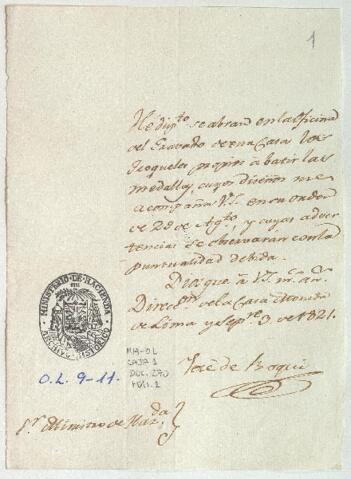 1
He disp.to se abran en la Oficina
del Gravado de esta Casa los
Troqueles, propios à batir las
medallas, cuyos diseños me
acompaña V.S. en su orden
de 29 de Ag.to, y cuyas adver
tencias se observarán con la
puntualidad debida.
Dios gue. à V.S. m.s a.s
Direc.on de la Casa Moneda
de Lima y Sep.re 3 de 1821.
José de Boqui
S.or Ministro de Haz.da
MINISTERIO DE HACIENDA
ARCHIVO HISTORICO
O.L. 9-11.
MH-OL
CAJA 1
DOC. 270
FOL. 1